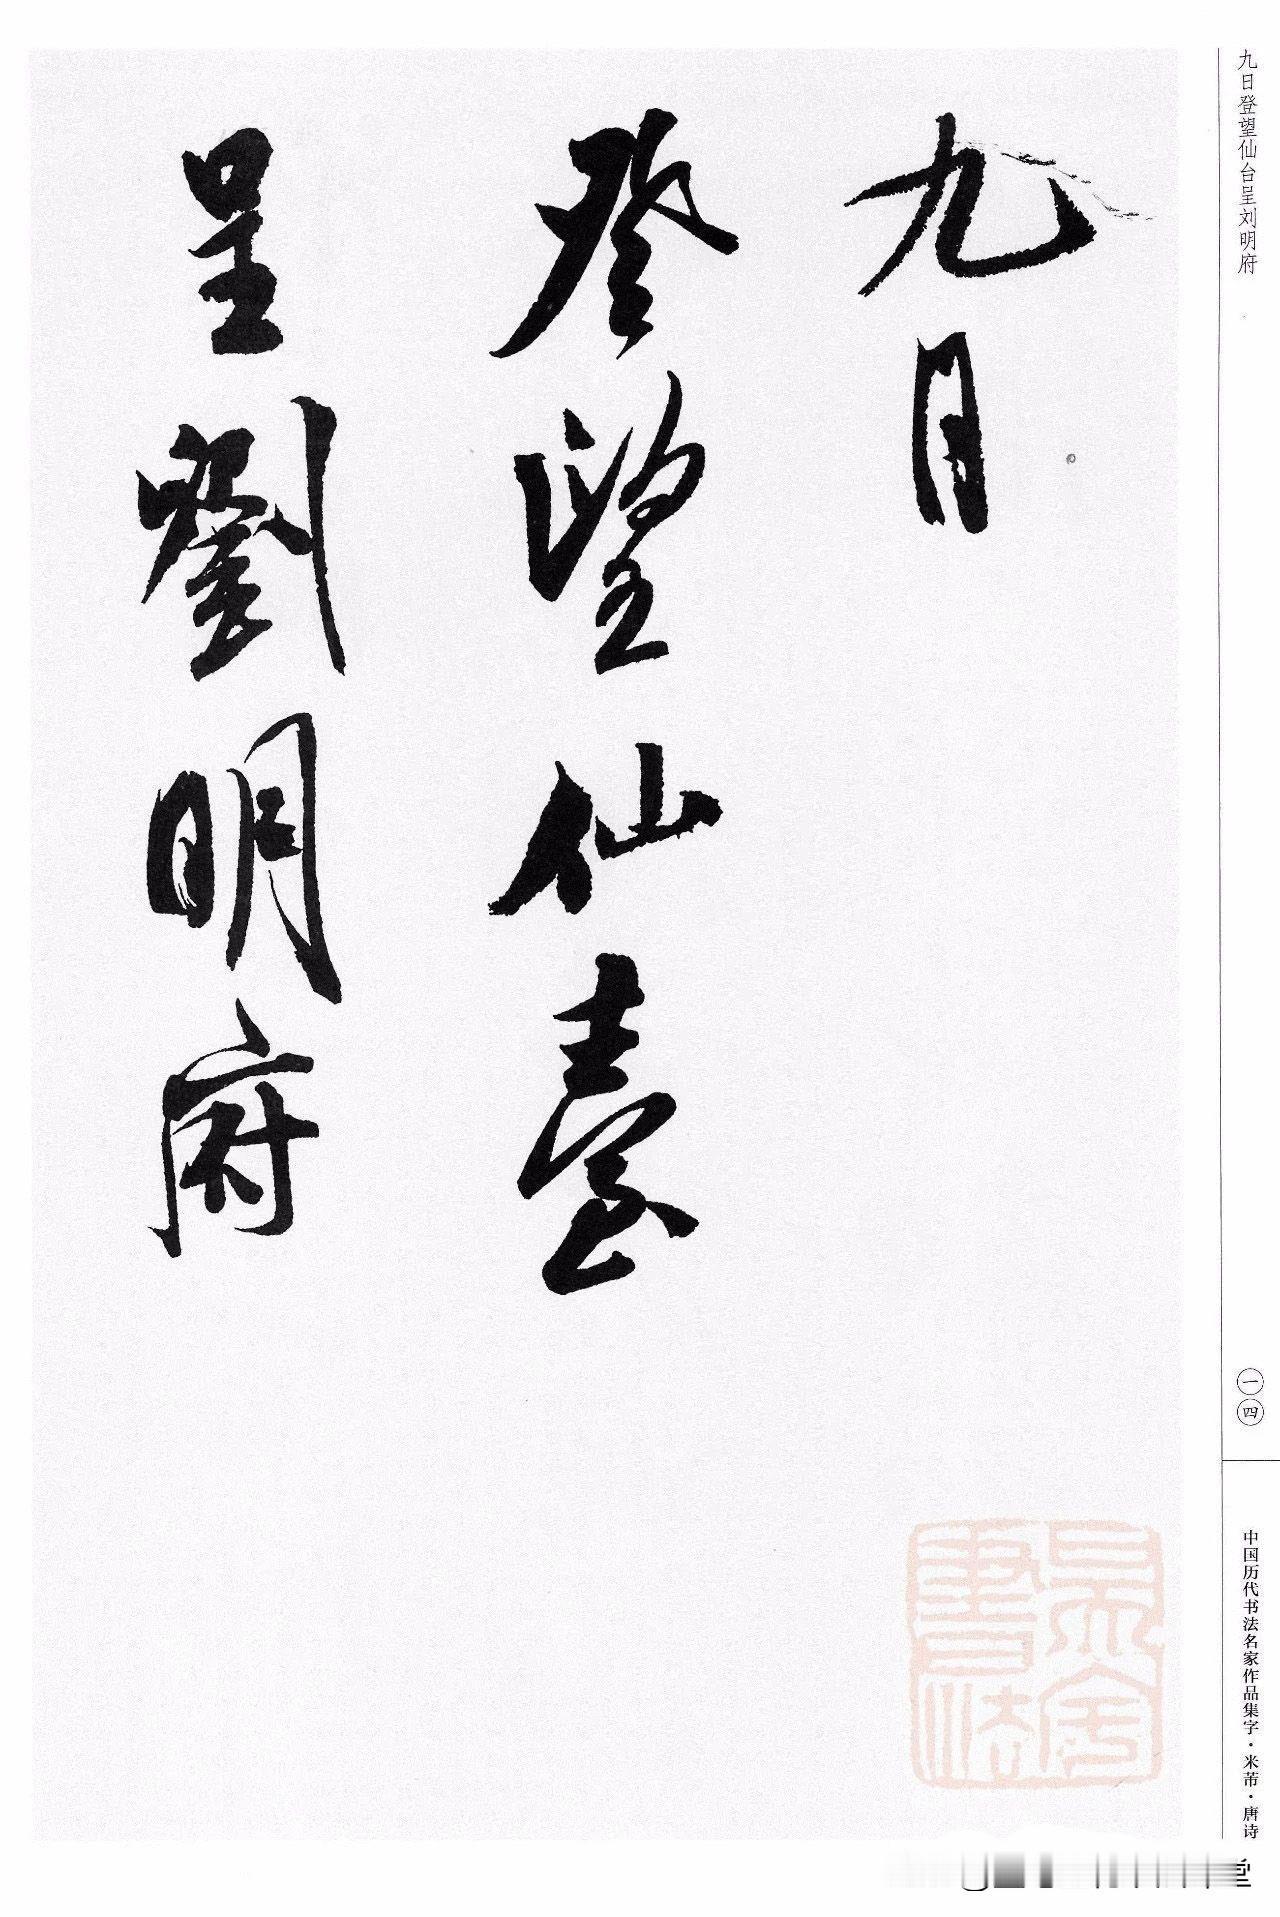 九日登望仙台呈刘明府
九日
登望仙臺
呈劉明府
一四
中国历代书法名家作品集字·米芾·唐诗